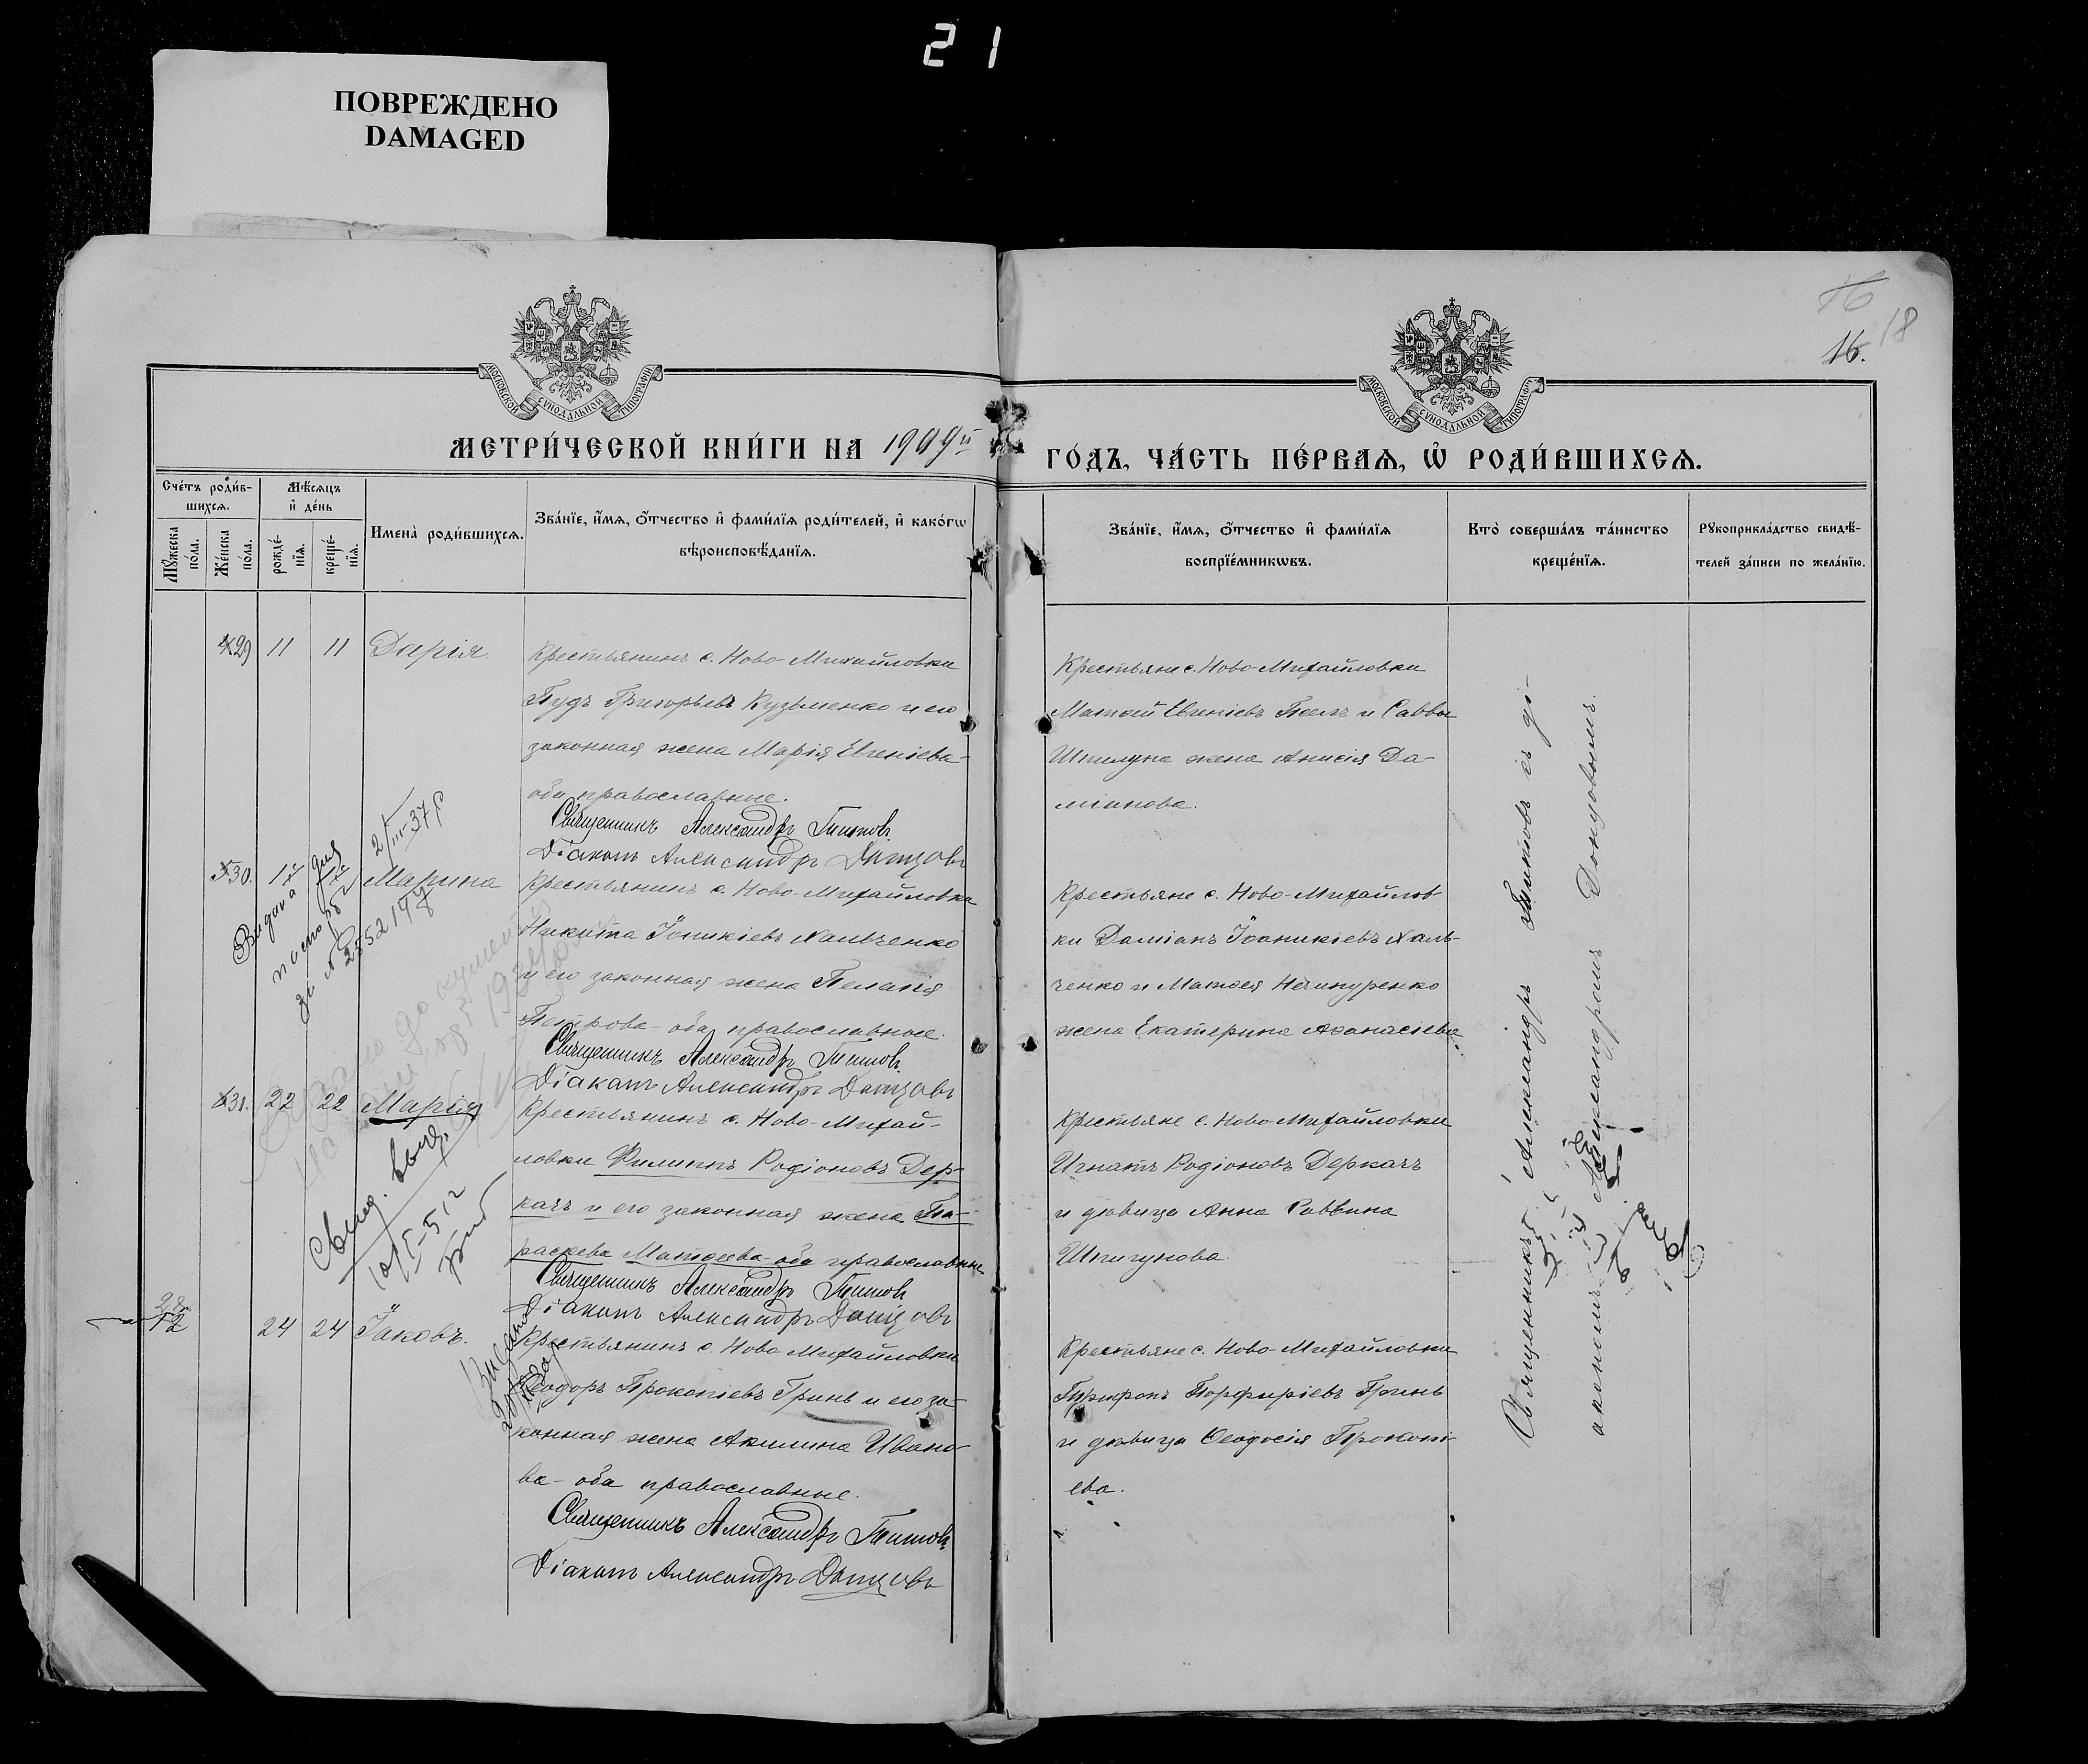 21
ПОВРЕЖДЕНО
DAMAGED
16
18
16.
МОСКОВСКОЙ СѴНОДАЛЬНОЙ ТИПОГРАФІИ
МОСКОВСКОЙ СѴНОДАЛЬНОЙ ТИПОГРАФІИ
МЕТРИ́ЧЕСКОЙ КНИ́ГИ НА 1909й
ГО́ДЪ, ЧА́СТЬ ПЕ́РВАѦ, Ѡ҆ РОДИ́ВШИХСѦ.
Сче́тъ роди́в-
шихсѧ.
Мѣ́сѧцъ
и҆ де́нь
Мꙋ́жеска по́ла.
Же́нска по́ла.
рожде́-
нїѧ.
креще́-
нїѧ.
Имена̀ роди́вшихсѧ.
Зва́нїе, и҆́мѧ, ѻ҆́тчество и҆ фами́лїѧ роди́телей, и҆ како́гѡ
вѣроисповѣ́данїѧ.
Зва́нїе, и҆́мѧ, ѻ҆́тчество и҆ фами́лїѧ
воспрїе́мникѡвъ.
Кто̀ соверша́лъ та́инство
креще́нїѧ.
Рꙋкоприкла́дство свидѣ́-
телей за́писи по жела́нїю.
29 11 11 Дарія
Крестьянинъ с. Ново-Михайловки
Пудъ Григорьевъ Кузьменко и его
законная жена Марія Евгеніева
оба православные.
Священникъ Александръ Титовъ
Діаконъ Александръ Донцовъ
Крестьяне с. Ново-Михайловки
Матѳей Евгеніевъ и Саввы
жена Анисія Да-
міанова.
30. 17 17 Марина
2/III-37 р
Видана
Крестьянинъ с. Ново-Михайловки
Никита Іоникіевъ Хальченко
и его законная жена Пелагія
Петрова - оба православные.
Священникъ Александръ Титовъ
Діаконъ Александръ Донцовъ
Крестьяне с. Ново-Михайлов-
ки Даміанъ Іоаникіевъ Халь-
ченко и Матѳея Нечипуренко
жена Екатерина Аѳанасіева.
31. 22 22 Марія
Крестьянинъ с. Ново-Михай-
ловки Филиппъ Родіоновъ Дер-
качъ и его законная жена Па-
раскева Матѳеева - оба православные
Священникъ Александръ Титовъ
Діаконъ Александръ Донцовъ
Крестьяне с. Ново-Михайловки
Игнатъ Родіоновъ Деркачъ
и дѣвица Анна Саввина
Шпигунова.
24 24 Іаковъ.
Крестьянинъ с. Ново-Михайловки
Ѳеодоръ Прокопіевъ Гринь и его за-
конная жена Акилина Ивано-
ва - оба православные.
Священникъ Александръ Титовъ
Діаконъ Александръ Донцовъ
Крестьяне с. Ново-Михайловки
Порфиріевъ Гринь
и дѣвица Ѳеодосія Прокопі-
ева.
Священникъ Александръ Титовъ съ ді-
акономъ Александромъ Донцовымъ.